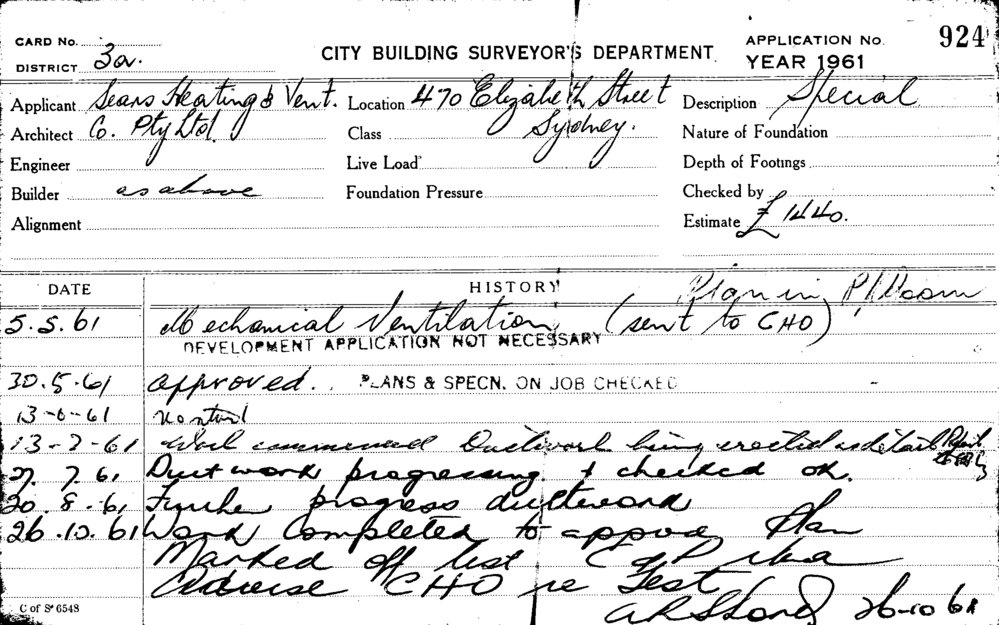 CARD No.
DISTRICT 3a.
CITY BUILDING SURVEYOR'S DEPARTMENT
APPLICATION No. 924
YEAR 1961
Applicant Sears Heating & Vent.
Architect Co. Pty Ltd.
Engineer
Builder as above
Alignment
Location 470 Elizabeth Street
Class Sydney.
Live Load
Foundation Pressure
Description Special
Nature of Foundation
Depth of Footings
Checked by
Estimate £1440.
DATE HISTORY Plan in P/Room
5.5.61 Mechanical Ventilation (sent to CHO)
DEVELOPMENT APPLICATION NOT NECESSARY
30.5.61 approved. PLANS & SPECN. ON JOB CHECKED
13-6-61 not
13-7-61 Work commenced Ductwork being erected as detail
27.7.61 Duct work progressing & checked ok.
20.8.61 Further progress ductwork
26.10.61 Work Completed to approv Plan
Marked off list
Advise CHO re Test
26-10 61
C of S 6548